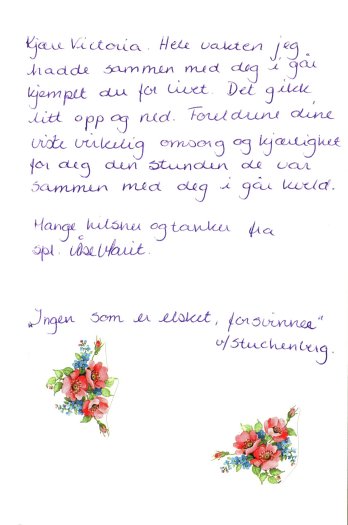 Kjære Victoria. Hele vakten jeg
hadde sammen med deg i går
kjempet du for livet. Det gikk
litt opp og ned. Foreldrene dine
viste virkelig omsorg og kjærlighet
for deg den stunden de var
sammen med deg i går kveld.
Mange hilsner og tanker fra
spl. Åse Marit.
„Ingen som er elsket, forsvinner"
v/Stuchenberg.